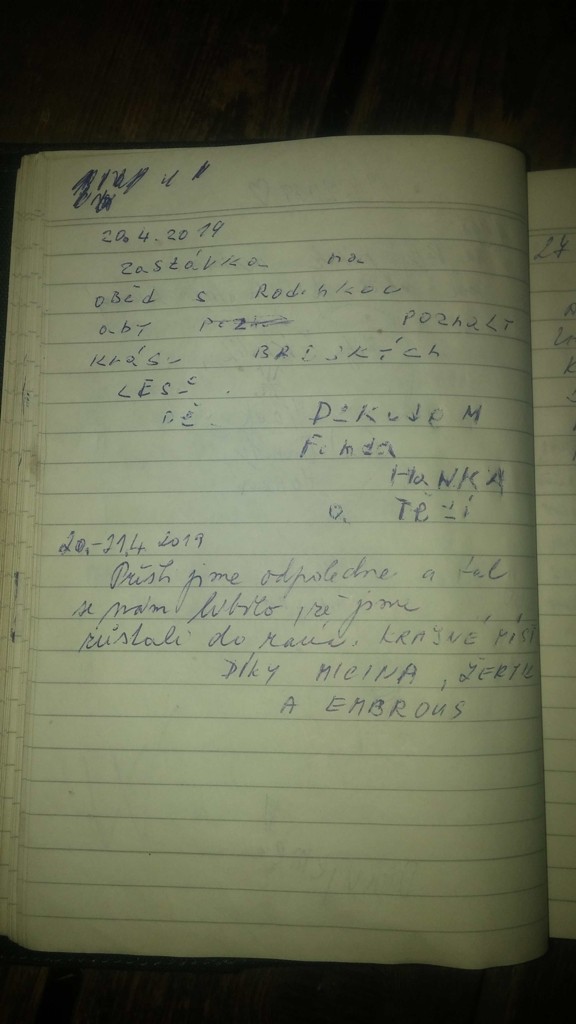 20.4.2019
zastávka na
oběd s Rodinkou
aby poznaly
krásy
LESŮ.
DĚKUJEM
Fanda
HANKA
a
20.-21.4 2019
Přišli jsme odpoledne a tak
se nám líbilo, že jsme
zůstali do rána. KRÁSNÉ MÍST
DÍKY MICINA, ŽERYK
A EMBROUS
27